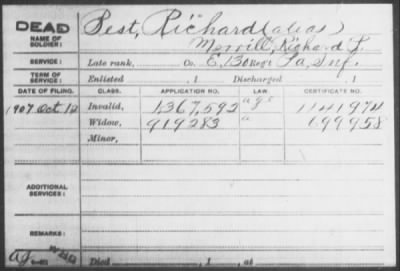 DEAD
NAME OF SOLDIER: Pest, Richard (alias)
Merrill, Richard L.
SERVICE: Late rank, Co. E, 130 Reg't Pa, Inf.
TERM OF SERVICE: Enlisted , 1 Discharged , 1
DATE OF FILING. CLASS. APPLICATION NO. LAW CERTIFICATE NO.
1907 Oct. 12 Invalid, 1,367,592 1141974
Widow, 919283 699958
Minor,
ADDITIONAL SERVICES:
REMARKS:
Died , 1 , at